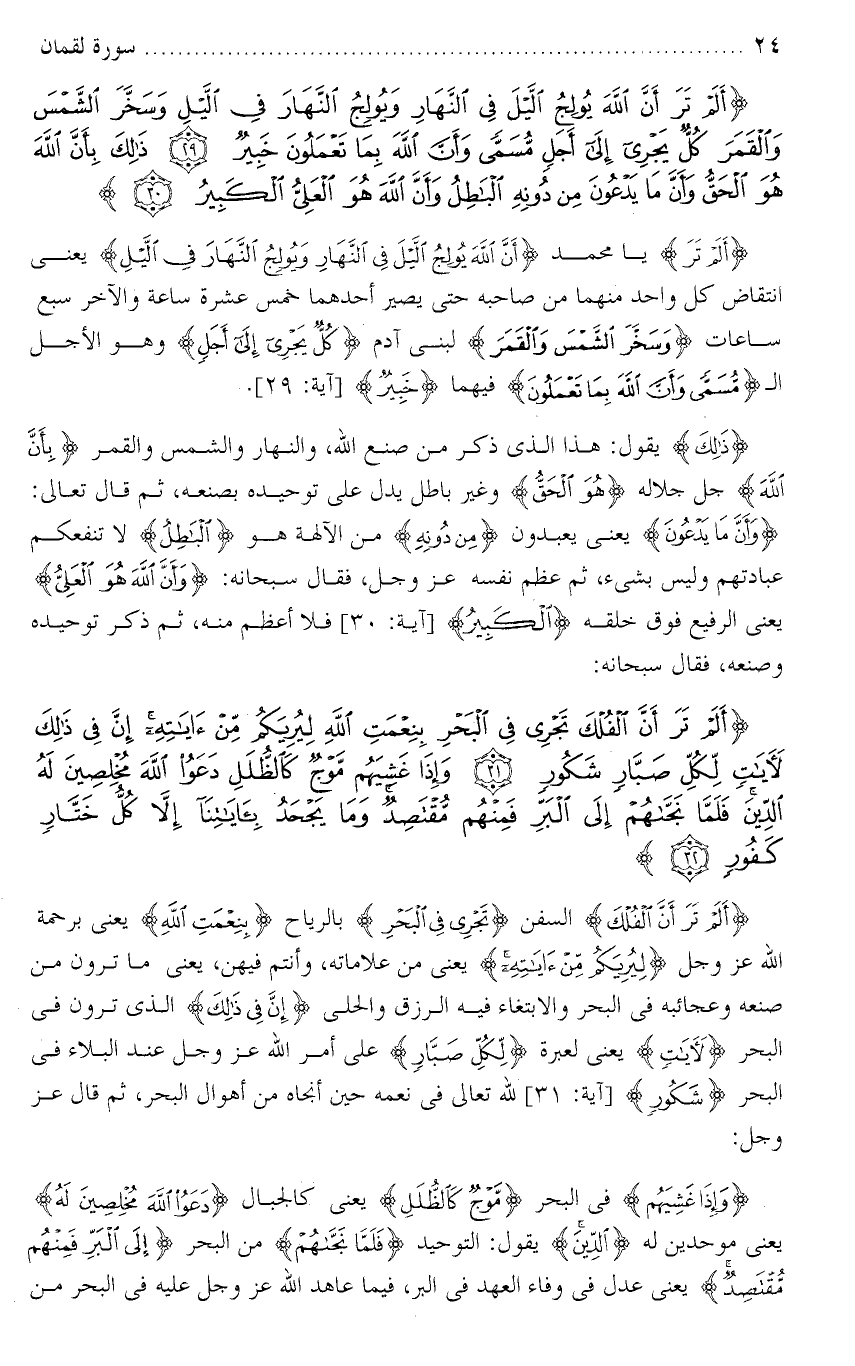 ٢٤ ........................................ سورة لقمان
﴿أَلَمْ تَرَ أَنَّ ٱللَّهَ يُولِجُ ٱلَّيْلَ فِى ٱلنَّهَارِ وَيُولِجُ ٱلنَّهَارَ فِى ٱلَّيْلِ وَسَخَّرَ ٱلشَّمْسَ
وَٱلْقَمَرَ كُلٌّ يَجْرِىٓ إِلَىٰٓ أَجَلٍ مُّسَمًّى وَأَنَّ ٱللَّهَ بِمَا تَعْمَلُونَ خَبِيرٌ ٢٩ ذَٰلِكَ بِأَنَّ ٱللَّهَ
هُوَ ٱلْحَقُّ وَأَنَّ مَا يَدْعُونَ مِن دُونِهِ ٱلْبَٰطِلُ وَأَنَّ ٱللَّهَ هُوَ ٱلْعَلِىُّ ٱلْكَبِيرُ ٣٠ ﴾
﴿أَلَمْ تَرَ﴾ يا محمد ﴿أَنَّ ٱللَّهَ يُولِجُ ٱلَّيْلَ فِى ٱلنَّهَارِ وَيُولِجُ ٱلنَّهَارَ فِى ٱلَّيْلِ﴾ يعنى
انتقاض كل واحد منهما من صاحبه حتى يصير أحدهما خمس عشرة ساعة والآخر سبع
ساعات ﴿وَسَخَّرَ ٱلشَّمْسَ وَٱلْقَمَرَ﴾ لبنى آدم ﴿كُلٌّ يَجْرِىٓ إِلَىٰٓ أَجَلٍ﴾ وهو الأجل
الـ ﴿مُّسَمًّى وَأَنَّ ٱللَّهَ بِمَا تَعْمَلُونَ﴾ فيهما ﴿خَبِيرٌ﴾ [آية: ٢٩].
﴿ذَٰلِكَ﴾ يقول: هذا الذى ذكر من صنع الله، والنهار والشمس والقمر ﴿بِأَنَّ
ٱللَّهَ﴾ جل جلاله ﴿هُوَ ٱلْحَقُّ﴾ وغير باطل يدل على توحيده بصنعه، ثم قال تعالى:
﴿وَأَنَّ مَا يَدْعُونَ﴾ يعنى يعبدون ﴿مِن دُونِهِ﴾ من الآلهة هو ﴿ٱلْبَٰطِلُ﴾ لا تنفعكم
عبادتهم وليس بشىء، ثم عظم نفسه عز وجل، فقال سبحانه: ﴿وَأَنَّ ٱللَّهَ هُوَ ٱلْعَلِىُّ﴾
يعنى الرفيع فوق خلقه ﴿ٱلْكَبِيرُ﴾ [آية: ٣٠] فلا أعظم منه، ثم ذكر توحيده
وصنعه، فقال سبحانه:
﴿أَلَمْ تَرَ أَنَّ ٱلْفُلْكَ تَجْرِى فِى ٱلْبَحْرِ بِنِعْمَتِ ٱللَّهِ لِيُرِيَكُم مِّنْ ءَايَٰتِهِۦٓ ۚ إِنَّ فِى ذَٰلِكَ
لَأَيَٰتٍ لِّكُلِّ صَبَّارٍ شَكُورٍ ٣١ وَإِذَا غَشِيَهُم مَّوْجٌ كَٱلظُّلَلِ دَعَوُا۟ ٱللَّهَ مُخْلِصِينَ لَهُ
ٱلدِّينَ فَلَمَّا نَجَّىٰهُمْ إِلَى ٱلْبَرِّ فَمِنْهُم مُّقْتَصِدٌ ۚ وَمَا يَجْحَدُ بِـَٔايَٰتِنَآ إِلَّا كُلُّ خَتَّارٍ
كَفُورٍ ٣٢ ﴾
﴿أَلَمْ تَرَ أَنَّ ٱلْفُلْكَ﴾ السفن ﴿تَجْرِى فِى ٱلْبَحْرِ﴾ بالرياح ﴿بِنِعْمَتِ ٱللَّهِ﴾ يعنى برحمة
الله عز وجل ﴿لِيُرِيَكُم مِّنْ ءَايَٰتِهِۦٓ ۚ﴾ يعنى من علاماته، وأنتم فيهن، يعنى ما ترون من
صنعه وعجائبه فى البحر والابتغاء فيه الرزق والحلى ﴿إِنَّ فِى ذَٰلِكَ﴾ الذى ترون فى
البحر ﴿لَأَيَٰتٍ﴾ يعنى لعبرة ﴿لِّكُلِّ صَبَّارٍ﴾ على أمر الله عز وجل عند البلاء فى
البحر ﴿شَكُورٍ﴾ [آية: ٣١] لله تعالى فى نعمه حين أنجاه من أهوال البحر، ثم قال عز
وجل:
﴿وَإِذَا غَشِيَهُم﴾ فى البحر ﴿مَّوْجٌ كَٱلظُّلَلِ﴾ يعنى كالجبال ﴿دَعَوُا۟ ٱللَّهَ مُخْلِصِينَ لَهُ﴾
يعنى موحدين له ﴿ٱلدِّينَ﴾ يقول: التوحيد ﴿فَلَمَّا نَجَّىٰهُمْ﴾ من البحر ﴿إِلَى ٱلْبَرِّ فَمِنْهُم
مُّقْتَصِدٌ ۚ﴾ يعنى عدل فى وفاء العهد فى البر، فيما عاهد الله عز وجل عليه فى البحر من